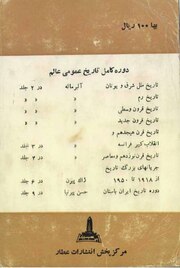 بها ۱۰۰ ریال
دوره کامل تاریخ عمومی عالم
تاریخ ملل شرق و یونان آلبرماله در ۲ جلد
تاریخ رم » » »
تاریخ قرون وسطی » » »
تاریخ قرون جدید » » »
تاریخ قرن هیجدهم و
انقلاب کبیر فرانسه » در ۲ جلد
تاریخ قرن نوزدهم و معاصر » در ۲ جلد
جریانهای بزرگ تاریخ
از ۱۹۱۸ تا ۱۹۵۰ ژاک پیرن در جلد
دوره تاریخ ایران باستان حسن پیرنیا در ۹ جلد
مرکز پخش انتشارات عطار